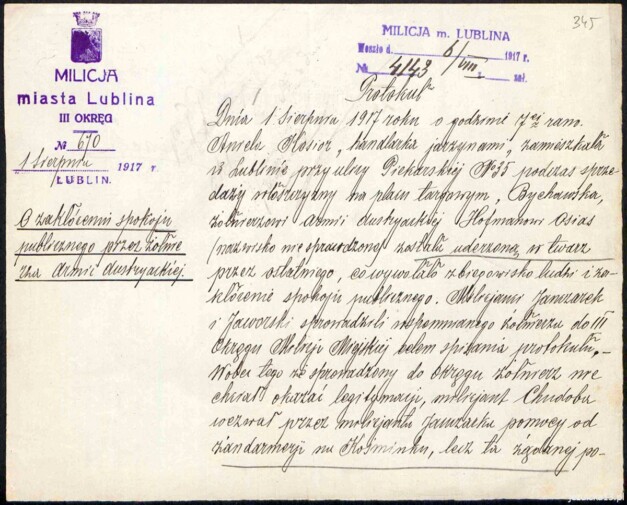 345
MILICJA
miasta Lublina
III OKRĘG
№ 670
1 Sierpnia 1917 r.
LUBLIN.
MILICJA m. LUBLINA
Weszło d. 6/VIII 1917 r.
№ 4143 zał.
O zakłóceniu spokoju
publicznego przez żołnie
rza Armii Austryackiej.
Protokuł
Dnia 1 Sierpnia 1917 roku o godzinie 7ej rano
Aniela Kosior, handlarka jarzynami, zamieszkała
w Lublinie przy ulicy Piekarskiej №35 podczas sprze
daży włoszczyzny na placu targowym „Bychawska,
żołnierzowi Armii Austryackiej Hofmanowi Osias
/nazwisko nie sprawdzone/ została uderzona w twarz
przez ostatniego, co wywołało zbiegowisko ludzi i za-
kłócenie spokoju publicznego. Milicjanci Jawzarek
i Jaworski sprowadzili wspomnianego żołnierza do III
Okręgu Milicji Miejskiej celem spisania protokułu.-
Wobec tego że sprowadzony do Okręgu żołnierz nie
chciał okazać legitymacji, milicjant Chudoba
wezwał przez milicjanta Jawzarka pomocy od
żandarmerji na Kośminku, lecz ta żądanej po-